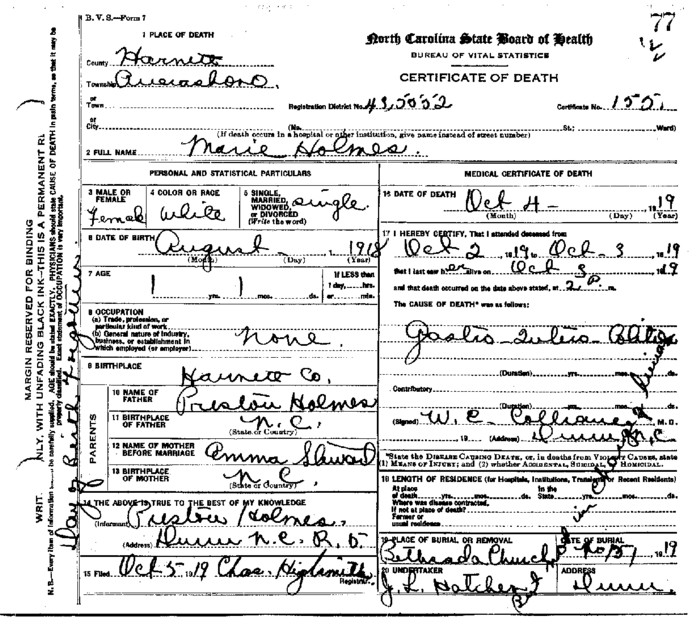 B. V. S.—Form 7
77
1 PLACE OF DEATH
North Carolina State Board of Health
BUREAU OF VITAL STATISTICS
CERTIFICATE OF DEATH
County Harnett
Township Averasboro.
or
Town
Registration District No. 43,5052
Certificate No. 155
or
City
(No.
St.;
Ward)
(If death occurs in a hospital or other institution, give name instead of street number)
2 FULL NAME Marie Holmes.
PERSONAL AND STATISTICAL PARTICULARS
3 MALE OR FEMALE
Female
4 COLOR OR RACE
White
5 SINGLE, MARRIED, WIDOWED, or DIVORCED (Write the word)
single.
6 DATE OF BIRTH August 1, 1918
(Month) (Day) (Year)
7 AGE
yrs. mos. ds.
If LESS than
1 day, hrs.
or min.
8 OCCUPATION
(a) Trade, profession, or
particular kind of work
(b) General nature of industry,
business, or establishment in
which employed (or employer)
none.
9 BIRTHPLACE
Harnett Co.
PARENTS
10 NAME OF FATHER
Preston Holmes
11 BIRTHPLACE OF FATHER
N.C.
(State or Country)
12 NAME OF MOTHER BEFORE MARRIAGE
Emma
13 BIRTHPLACE OF MOTHER
N C
(State or Country)
14 THE ABOVE IS TRUE TO THE BEST OF MY KNOWLEDGE
(Informant) Preston Holmes,
(Address) Dunn N.C. R. 5
15 Filed Oct 5 1919 Chas. Highsmith
Registrar
MEDICAL CERTIFICATE OF DEATH
16 DATE OF DEATH
Oct 4 - 1919
(Month) (Day) (Year)
17 I HEREBY CERTIFY, That I attended deceased from
Oct 2 1919 Oct 3 1919
that I last saw her alive on Oct 3 1919
and that death occurred on the date above stated, at 2 P. m.
The CAUSE OF DEATH* was as follows:
Gastro Colitis
(Duration) yrs. mos. ds.
Contributory
(Duration) yrs. mos. ds.
(Signed) W. E. M. D.
19 (Address) Dunn N.C
*State the DISEASE CAUSING DEATH, or, in deaths from VIOLENT CAUSES, state
(1) MEANS OF INJURY; and (2) whether ACCIDENTAL, SUICIDAL, or HOMICIDAL.
18 LENGTH OF RESIDENCE (for Hospitals, Institutions, Transients or Recent Residents)
At place of death yrs. mos. ds. In the State yrs. mos. ds.
Where was disease contracted,
if not at place of death?
Former or
usual residence
19 PLACE OF BURIAL OR REMOVAL
Bethsada Church
DATE OF BURIAL
1919
20 UNDERTAKER
J. L. Hatcher
ADDRESS
Dunn.
MARGIN RESERVED FOR BINDING
NLY, WITH UNFADING BLACK INK—THIS IS A PERMANENT R
WRIT
N. B.—Every item of information be carefully supplied. AGE should be stated EXACTLY. PHYSICIANS should state CAUSE OF DEATH in plain terms, so that it may be
properly classified. Exact statement of OCCUPATION is very important.
Day of Birth Forgotten